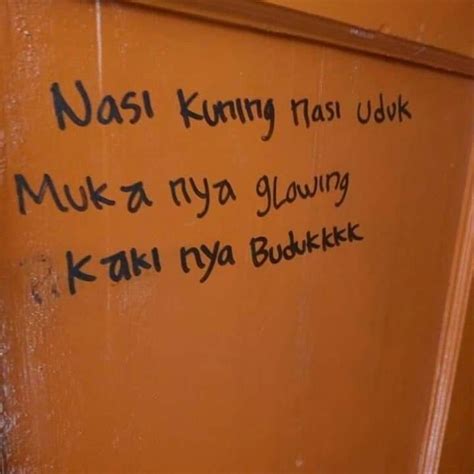 Nasi kuning nasi uduk
Muka nya glowing
kaki nya Budukkkk